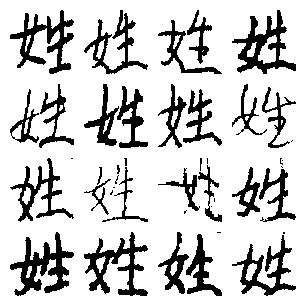 姓姓姓姓
姓姓姓姓
姓姓姓姓
姓姓姓姓